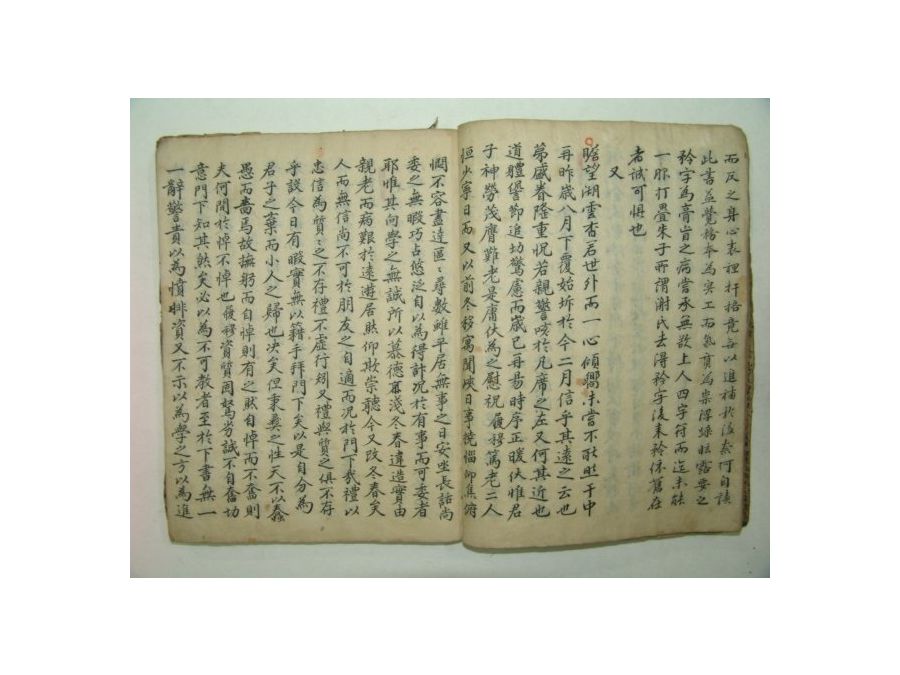 而反之身心表裡扞格竟無以進補於後奈何自讀
此書益覺務本為實工而氣質為祟浮
矜字為膏肓之病當承無敢上人四字符而迄未能
一腳打疊朱子所謂謝氏去得矜字後來矜依舊存
者誠可惧也
又
瞻望湖雲杳若世外而一心傾嚮未嘗不耿耿于中
再昨歲八月下覆始拆於今二月信乎其遠之云也
第盛眷隆重怳若親警咳於几席之左又何其近也
道體優節追切驚慮而歲已再易時序正暖伏惟君
子神勞茂膺難老是庸伏為之慰祝履穆篤老二人
恒少寧日而又以前冬移寓聞峽日事撓惱仰焦俯
憫不容書達區區尋數雖平居無事之日安坐長話尚
委之無暇巧占悠泛自以為得計況於有事而可委者
耶惟其向學之無誠所以慕德寡淺冬春違造實由
親老而病艱於遠遊居然仰欺崇聽今又改冬春矣
人而無信尚不可於朋友之自適而況於門下哉禮以
忠信為質質之不存禮不虛行矧又禮與質之俱不存
乎設今日有暇實無以籍手拜門下矣以是自分為
君子之棄而小人之歸也决矣但秉彝之性天不以蠢
愚而嗇焉故撫躬而自悼則有之然自悼而不奮則
夫何間於悼不悼也履穆資質固駑劣誠不自奮切
意門下知其然矣必以為不可教者至於下書無一
一辭警責以為憤悱資又不示以為學之方以為進